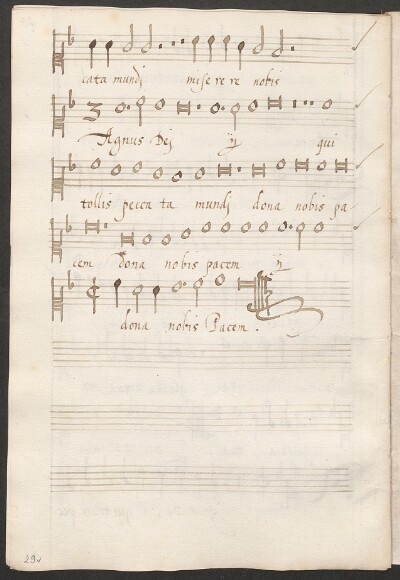 cata mundj mise re re nobis
3
Agnus Dej ij qui
tollis pecca ta mundj dona nobis pa-
cem dona nobis pacem ij
dona nobis Pacem.
29v